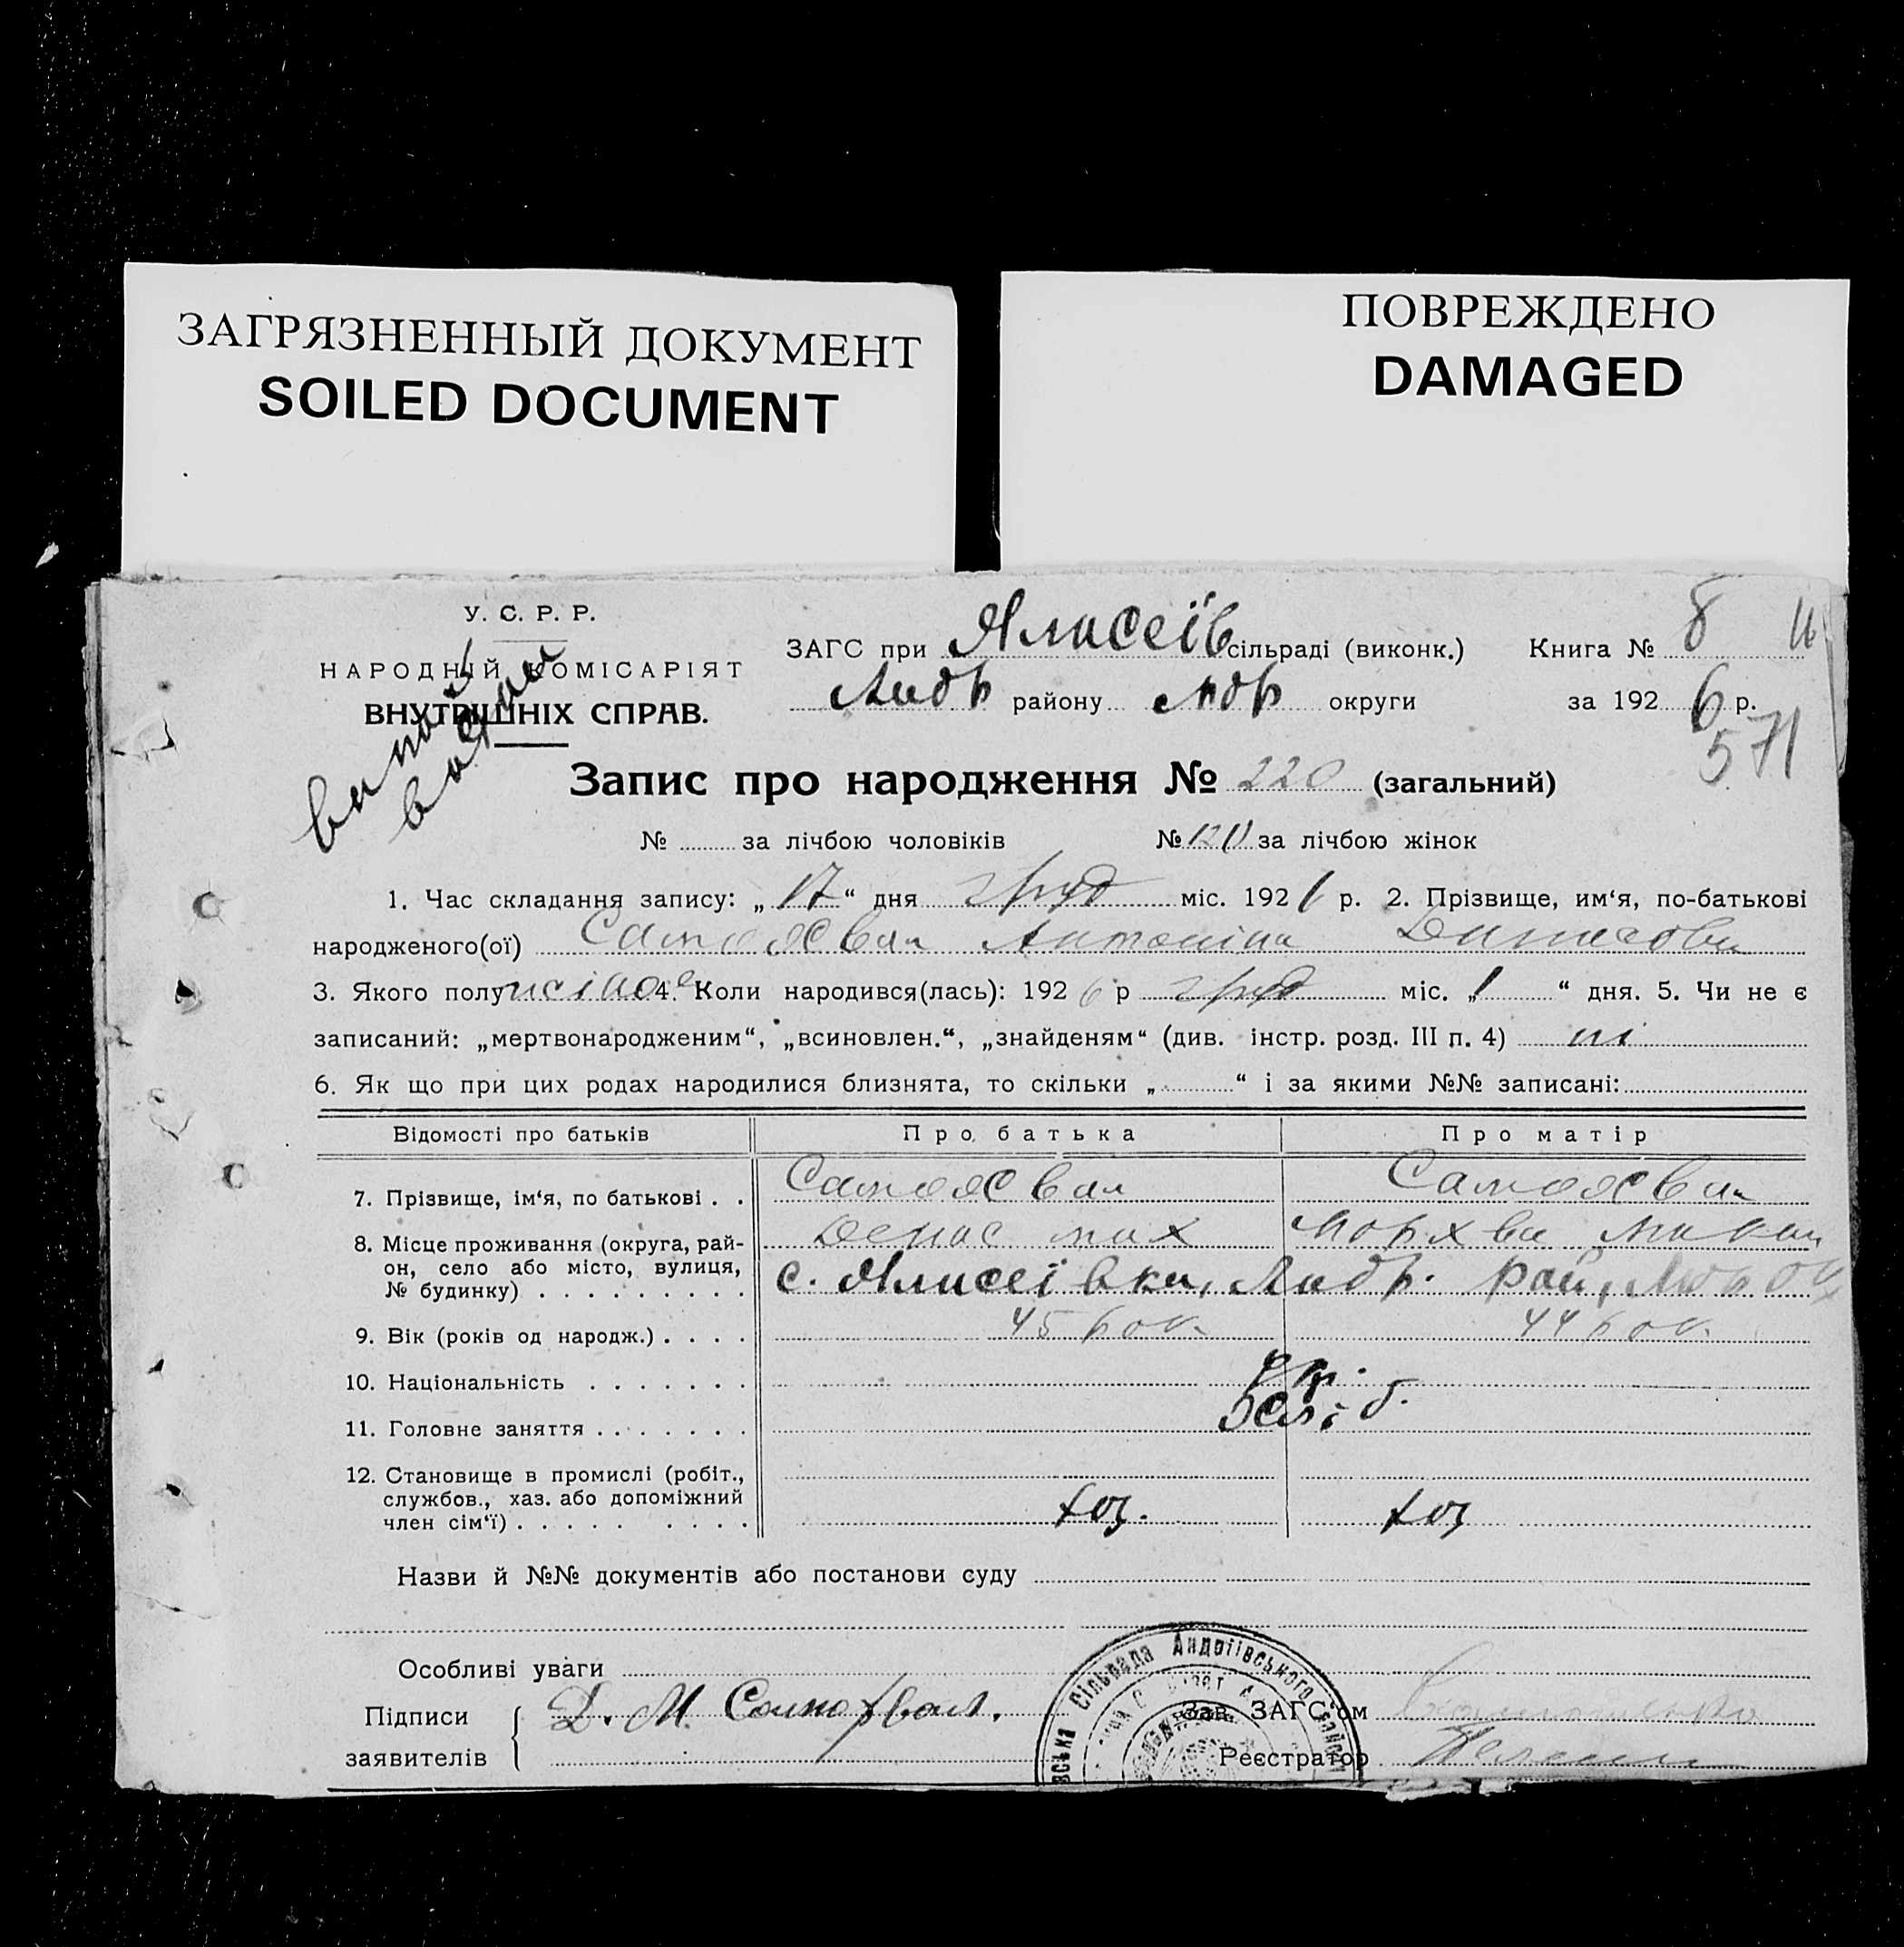 ЗАГРЯЗНЕННЫЙ ДОКУМЕНТ
SOILED DOCUMENT
ПОВРЕЖДЕНО
DAMAGED
У. С. Р. Р.
НАРОДНІЙ КОМІСАРІЯТ
ВНУТРІШНІХ СПРАВ.
ЗАГС при сільраді (виконк.) Книга № 8
району округи за 1926 р.
571
Запис про народження № 220 (загальний)
№ за лічбою чоловіків № 120 за лічбою жінок
1. Час складання запису: „17“ дня груд міс. 1926 р. 2. Прізвище, им‘я, по-батькові
народженого(ої) Самохвал Антоніна Денисовн
3. Якого полу жіноче 4. Коли народився(лась): 1926 р груд міс. „1“ дня. 5. Чи не є
записаний: „мертвонародженим“, „всиновлен.“, „знайденям“ (див. інстр. розд. III п. 4) ні
6. Як що при цих родах народилися близнята, то скільки „ “ і за якими №№ записані:
Відомості про батьків Про батька Про матір
7. Прізвище, ім‘я, по батькові . . Самохвал Самохвал
Денис
8. Місце проживання (округа, рай-
он, село або місто, вулиця,
№ будинку) . . . . . . . . .
9. Вік (років од народж.) . . . . 45 рок. 44 рок.
10. Національність . . . . . . . укр.
11. Головне заняття . . . . . . . хліб.
12. Становище в промислі (робіт.,
службов., хаз. або допоміжний
член сім‘ї) . . . . . . . . . хоз. хоз
Назви й №№ документів або постанови суду
Особливі уваги
Підписи
заявителів
Д. М. Самохвал.
Сільрада Андріївського
Зав. ЗАГС‘ом
Реєстратор